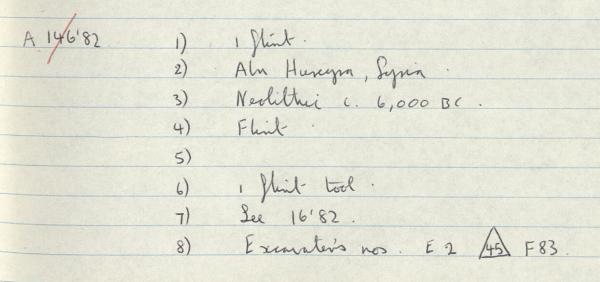 A 146'82 1) 1 flint.
2) Abu Hureyra, Syria.
3) Neolithic c. 6,000 BC.
4) Flint.
5)
6) 1 flint tool.
7) See 16'82.
8) Excavator's nos. E 2 45 F 83.